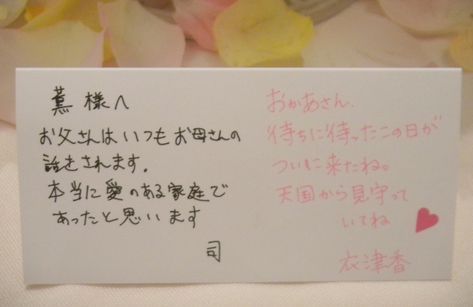 薫様へ
お父さんはいつもお母さんの
話をされます。
本当に愛のある家庭で
あったと思います
司
おかあさん、
待ちに待ったこの日が
ついに来たね。
天国から見守って
いてね
衣津香